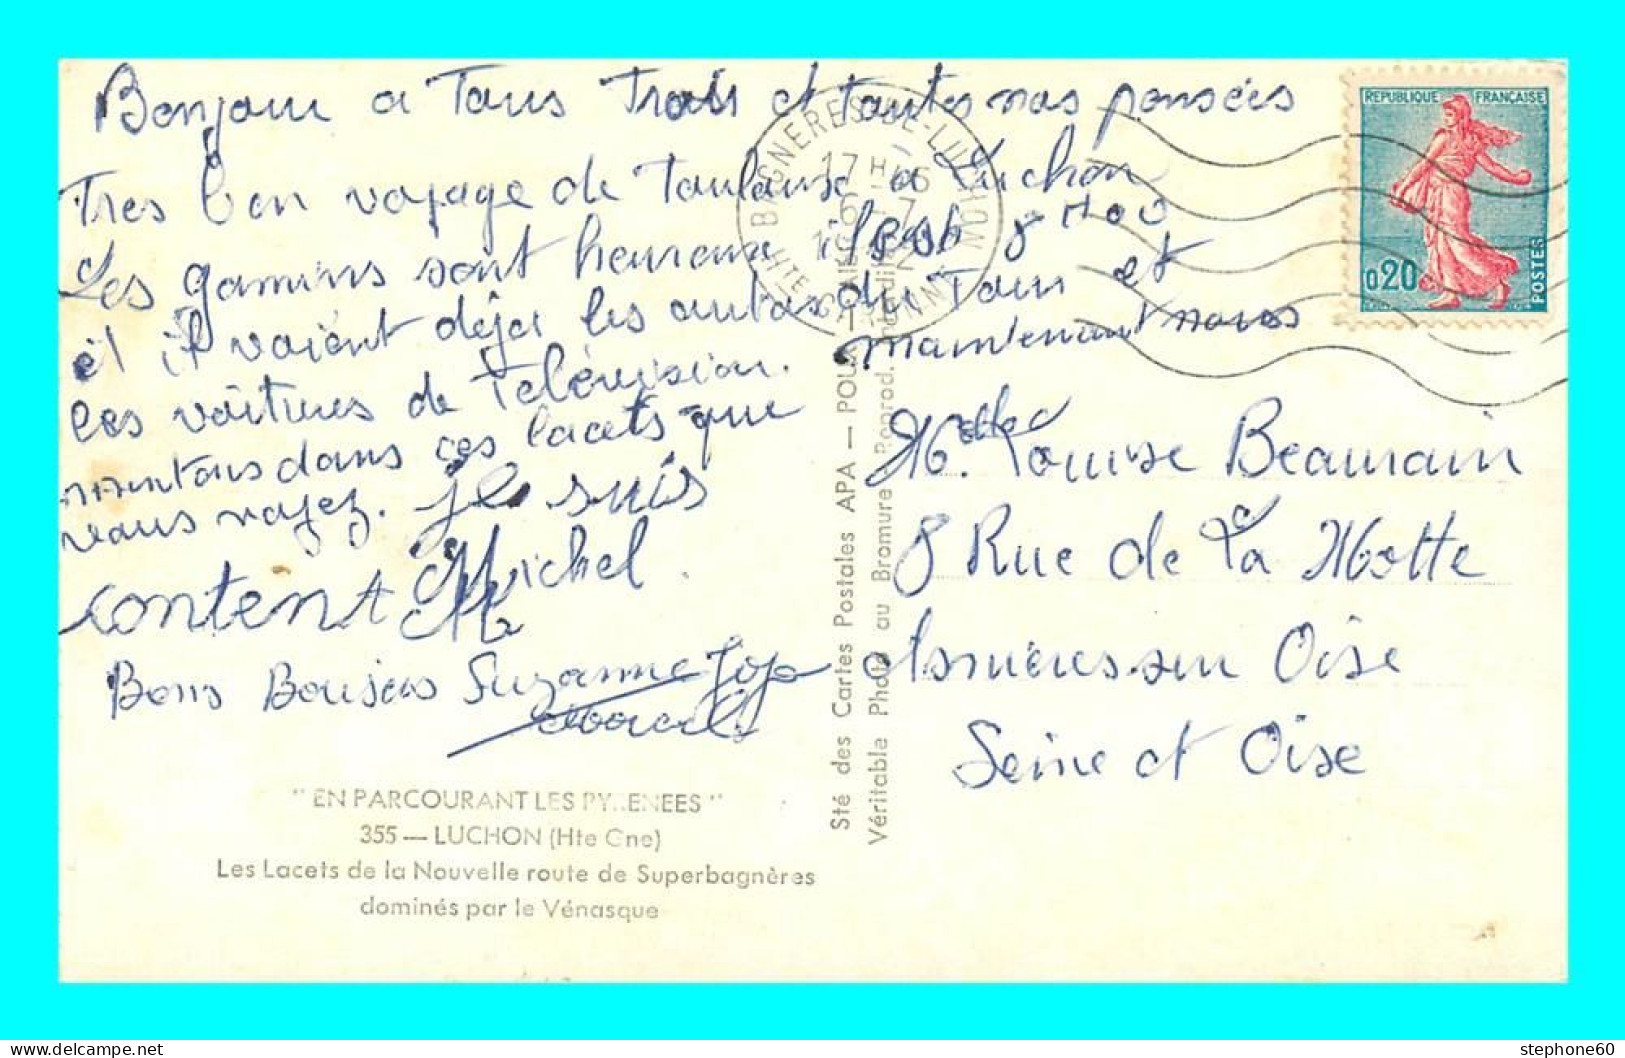 Bonjour a Tous Trois et toutes nos pensées
Tres bon voyage de Toulouse a Luchon
Les gamins sont heureux il est 8 H 00
et il voient déja les autos du Tour et
les voitures de Télévision. maintenant nous
montons dans ces lacets que
vous voyez. je suis
content Michel.
Bons Baisers Suzanne Jojo
"EN PARCOURANT LES PYRENEES"
355 — LUCHON (Hte Gne)
Les Lacets de la Nouvelle route de Superbagnères
dominés par le Vénasque
Sté des Cartes Postales APA — POUX
Véritable Photo au Bromure - Reprod. interdite
BAGNERES-DE-LUCHON
17 H 45
6 - 7
1962
HTE GARONNE
REPUBLIQUE FRANÇAISE
0,20
POSTES
Louise Beaurain
8 Rue de La Motte
Asnieres sur Oise
Seine et Oise
stephone60